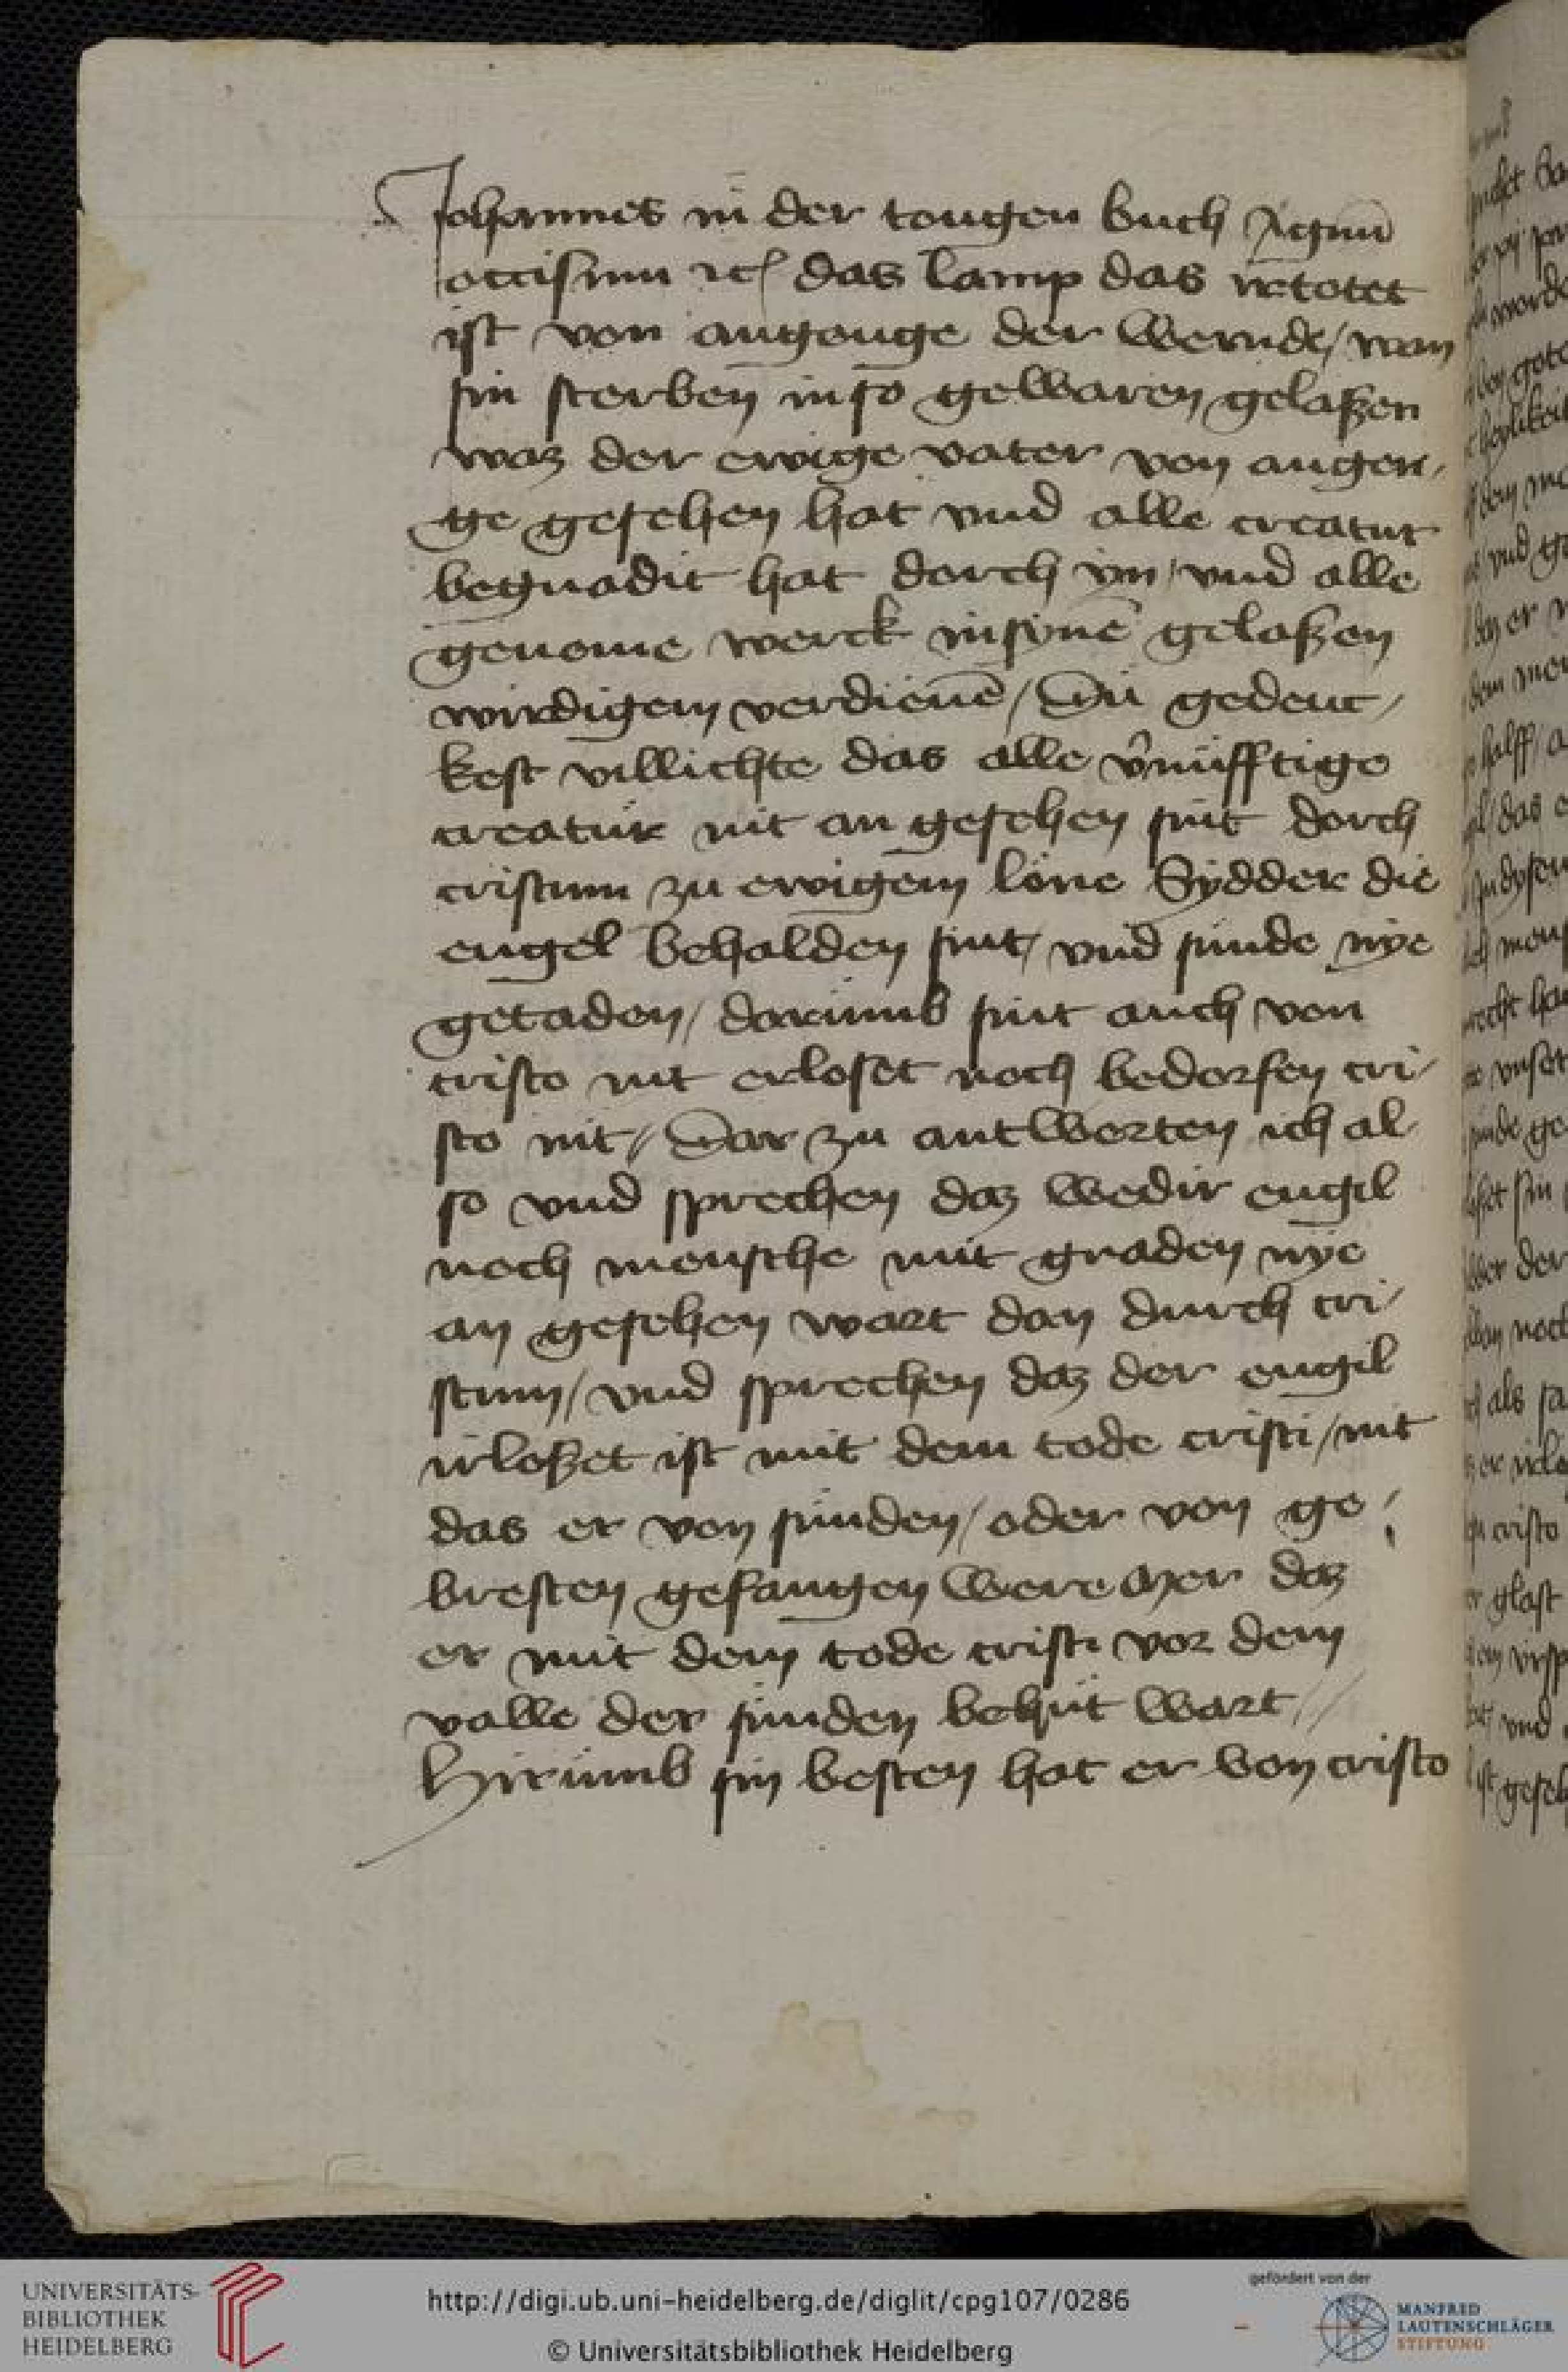 Johannes in der tougen buch Agnū
occisum ⁊cꝭ das lamp das irtotet
ist von angonge der wernde / wan
sin sterben in so gewaren gelaßen
waz der ewige vater von angen /
ge gesehen hat vnd alle creatur
begnadit hat dorch yn / vnd alle
genome werck in synē gelaßen
wirdigem verdienē / Du gedenc /
kest villichte das alle v̄nüfftige
creatúr nit an gesehen sint dorch
cristum zu ewigem lone Sydder die
engel behalden sint / vnd sunde nye
getaden // dorumb sint auch von
cristo nit erloset noch bedorfen cri /
sto nit // Dar zu antworten ich al
so vnd sprechen daz wedir engil
noch mensche mit gnaden nye
an gesehen wart dan durch cri /
stum / vnd sprechen daz der engil
irloßet ist mit dem tode cristi / nit
das er von sunden / oder von ge /
bresten gefangen were Mer daz
er mit dem tode cristi vor dem
valle der sunden behut wart //
Hirumb sin besten hat er von cristo
UNIVERSITÄTS-
BIBLIOTHEK
HEIDELBERG
http://digi.ub.uni-heidelberg.de/diglit/cpg107/0286
© Universitätsbibliothek Heidelberg
gefördert von der
MANFRED
LAUTENSCHLÄGER
STIFTUNG